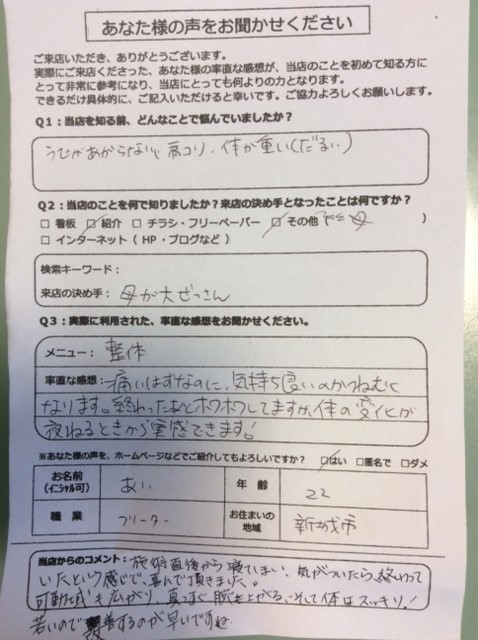 あなた様の声をお聞かせください
ご来店いただき、ありがとうございます。
実際にご来店くださった、あなた様の率直な感想が、当店のことを初めて知る方に
とって非常に参考になり、当店にとっても何よりの力となります。
できるだけ具体的に、ご記入いただけると幸いです。ご協力よろしくお願いします。
Q1：当店を知る前、どんなことで悩んでいましたか？
うでがあがらない、肩コリ、体が重い(だるい)
Q2：当店のことを何で知りましたか？来店の決め手となったことは何ですか？
□ 看板 □ 紹介 □ チラシ・フリーペーパー □ その他 母 ）
□ インターネット（ HP・ブログなど ）
検索キーワード：
来店の決め手： 母が大ぜっさん
Q3：実際に利用された、率直な感想をお聞かせください。
メニュー： 整体
率直な感想： 痛いはずなのに、気持ち良いのかつねむく
なります。終わったあとホワホワしてますが、体の変化が
夜ねるときから実感できます!
※あなた様の声を、ホームページなどでご紹介してもよろしいですか？ □はい □匿名で □ダメ
お名前 （イニシャル可） あい 年 齢 22
職 業 フリーター お住まいの 地域 新城市
当店からのコメント： 施術直後から寝てしまい、気がついたら終わって
いたという感じで、喜んで頂きました。
可動域も広がり、真っすぐ腕も上がる、そして体はスッキリ!
若いので 着するのが早いですね